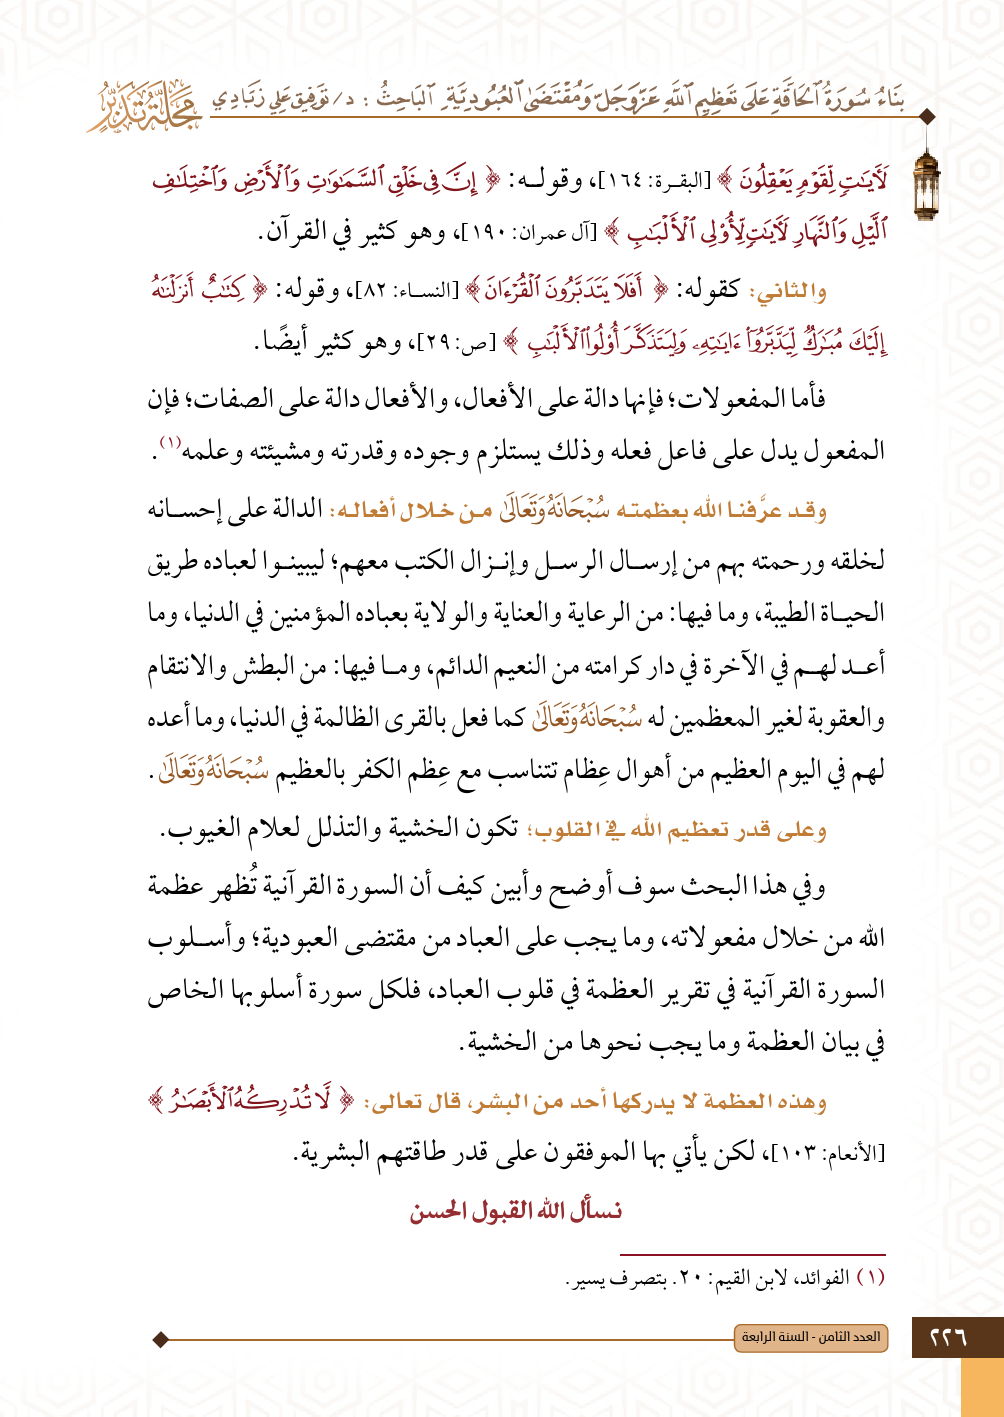 بِنَاءُ سُورَةُ الْحَاقَّةِ عَلَى تَعْظِيمِ اللَّهِ عَزَّوَجَلَّ وَمُقْتَضَى الْعُبُودِيَّةِ. الْبَاحِثُ : د/ تَوْفِيق عَلِي زَبَادِي
مَجَلَّة تَدَبُّر
لَآيَاتٍ لِّقَوْمٍ يَعْقِلُونَ ﴾ [البقرة: ١٦٤]، وقوله: ﴿ إِنَّ فِي خَلْقِ السَّمَاوَاتِ وَالْأَرْضِ وَاخْتِلَافِ
اللَّيْلِ وَالنَّهَارِ لَآيَاتٍ لِّأُولِي الْأَلْبَابِ ﴾ [آل عمران: ١٩٠]، وهو كثير في القرآن.
والثاني: كقوله: ﴿ أَفَلَا يَتَدَبَّرُونَ الْقُرْءَانَ ﴾ [النساء: ٨٢]، وقوله: ﴿ كِتَابٌ أَنزَلْنَاهُ
إِلَيْكَ مُبَارَكٌ لِّيَدَّبَّرُوا ءَايَاتِهِ وَلِيَتَذَكَّرَ أُولُوا الْأَلْبَابِ ﴾ [ص: ٢٩]، وهو كثير أيضًا.
فأما المفعولات؛ فإنها دالة على الأفعال، والأفعال دالة على الصفات؛ فإن
المفعول يدل على فاعل فعله وذلك يستلزم وجوده وقدرته ومشيئته وعلمه(١).
وقد عرَّفنا الله بعظمته سُبْحَانَهُ وَتَعَالَى من خلال أفعاله: الدالة على إحسانه
لخلقه ورحمته بهم من إرسال الرسل وإنزال الكتب معهم؛ ليبينوا لعباده طريق
الحياة الطيبة، وما فيها: من الرعاية والعناية والولاية بعباده المؤمنين في الدنيا، وما
أعد لهم في الآخرة في دار كرامته من النعيم الدائم، وما فيها: من البطش والانتقام
والعقوبة لغير المعظمين له سُبْحَانَهُ وَتَعَالَى كما فعل بالقرى الظالمة في الدنيا، وما أعده
لهم في اليوم العظيم من أهوال عِظام تتناسب مع عِظم الكفر بالعظيم سُبْحَانَهُ وَتَعَالَى.
وعلى قدر تعظيم الله في القلوب؛ تكون الخشية والتذلل لعلام الغيوب.
وفي هذا البحث سوف أوضح وأبين كيف أن السورة القرآنية تُظهر عظمة
الله من خلال مفعولاته، وما يجب على العباد من مقتضى العبودية؛ وأسلوب
السورة القرآنية في تقرير العظمة في قلوب العباد، فلكل سورة أسلوبها الخاص
في بيان العظمة وما يجب نحوها من الخشية.
وهذه العظمة لا يدركها أحد من البشر، قال تعالى: ﴿ لَّا تُدْرِكُهُ الْأَبْصَارُ ﴾
[الأنعام: ١٠٣]، لكن يأتي بها الموفقون على قدر طاقتهم البشرية.
نسأل الله القبول الحسن
(١) الفوائد، لابن القيم: ٢٠. بتصرف يسير.
العدد الثامن - السنة الرابعة
٢٢٦